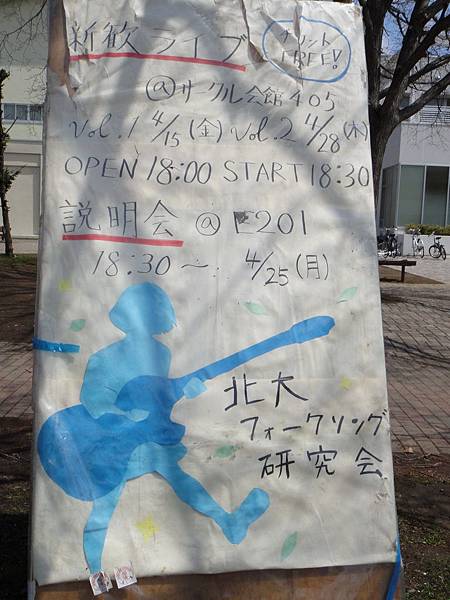 新歓ライブ
チケット
FREE!
@サークル会館405
Vol.1 4/15(金) Vol.2 4/28(木)
OPEN 18:00 START 18:30
説明会 @ E201
18:30〜 4/25(月)
北大
フォークソング
研究会